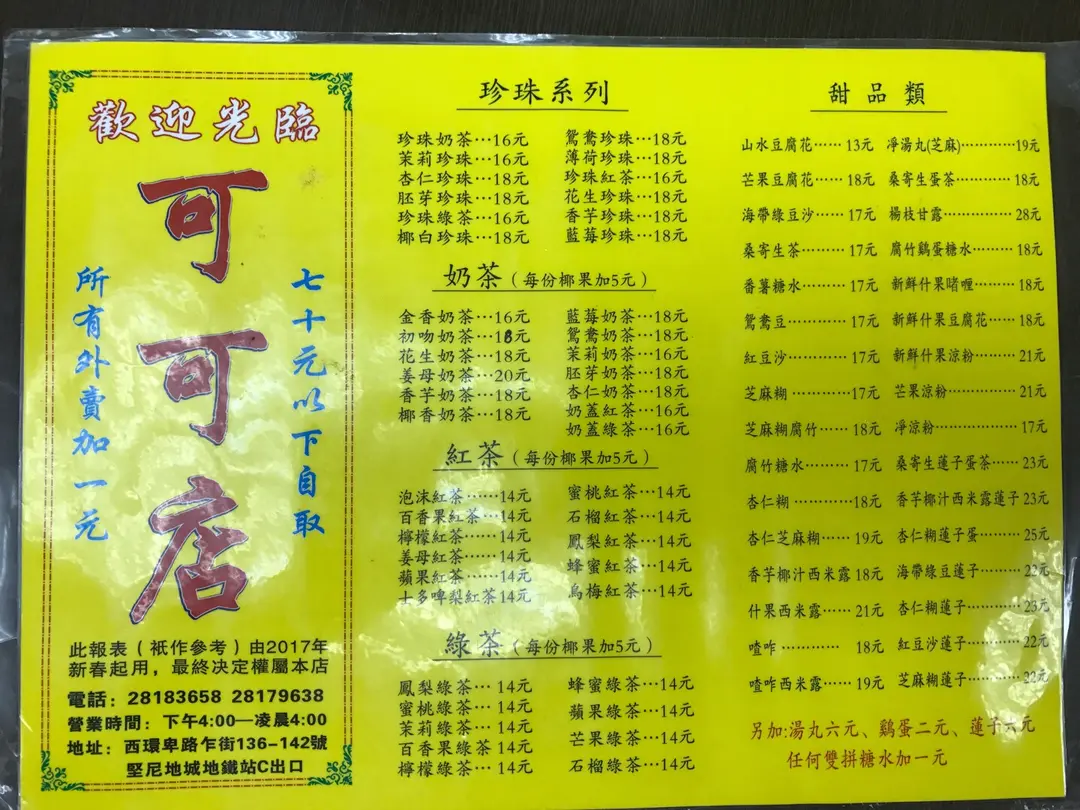 歡迎光臨
可可店
七十元以下自取
所有外賣加一元
此報表（祇作參考）由2017年
新春起用，最終決定權屬本店
電話：28183658 28179638
營業時間：下午4:00—凌晨4:00
地址：西環卑路乍街136-142號
堅尼地城地鐵站C出口
珍珠系列
珍珠奶茶…16元 鴛鴦珍珠…18元
茉莉珍珠…16元 薄荷珍珠…18元
杏仁珍珠…18元 珍珠紅茶…16元
胚芽珍珠…18元 花生珍珠…18元
珍珠綠茶…16元 香芋珍珠…18元
椰白珍珠…18元 藍莓珍珠…18元
奶茶（每份椰果加5元）
金香奶茶…16元 藍莓奶茶…18元
初吻奶茶…18元 鴛鴦奶茶…18元
花生奶茶…18元 茉莉奶茶…16元
姜母奶茶…20元 胚芽奶茶…18元
香芋奶茶…18元 杏仁奶茶…18元
椰香奶茶…18元 奶蓋紅茶…16元
奶蓋綠茶…16元
紅茶（每份椰果加5元）
泡沫紅茶……14元 蜜桃紅茶…14元
百香果紅茶…14元 石榴紅茶…14元
檸檬紅茶……14元 鳳梨紅茶…14元
姜母紅茶……14元 蜂蜜紅茶…14元
蘋果紅茶……14元 烏梅紅茶…14元
士多啤梨紅茶14元
綠茶（每份椰果加5元）
鳳梨綠茶… 14元 蜂蜜綠茶…14元
蜜桃綠茶… 14元 蘋果綠茶…14元
茉莉綠茶… 14元 芒果綠茶…14元
百香果綠茶 14元 石榴綠茶…14元
檸檬綠茶… 14元
甜品類
山水豆腐花…… 13元 凈湯丸(芝麻)…………19元
芒果豆腐花…… 18元 桑寄生蛋茶…………18元
海帶綠豆沙…… 17元 楊枝甘露……………28元
桑寄生茶………17元 腐竹鷄蛋糖水………18元
番薯糖水………17元 新鮮什果啫喱………18元
鴛鴦豆…………17元 新鮮什果豆腐花……18元
紅豆沙…………17元 新鮮什果涼粉………21元
芝麻糊…………17元 芒果涼粉……………21元
芝麻糊腐竹…… 18元 凈涼粉………………17元
腐竹糖水………17元 桑寄生蓮子蛋茶……23元
杏仁糊…………18元 香芋椰汁西米露蓮子23元
杏仁芝麻糊…… 19元 杏仁糊蓮子蛋………25元
香芋椰汁西米露 18元 海帶綠豆蓮子………22元
什果西米露…… 21元 杏仁糊蓮子…………23元
喳咋………… 18元 紅豆沙蓮子…………22元
喳咋西米露…… 19元 芝麻糊蓮子…………22元
另加:湯丸六元、鷄蛋二元、蓮子六元
任何雙拼糖水加一元